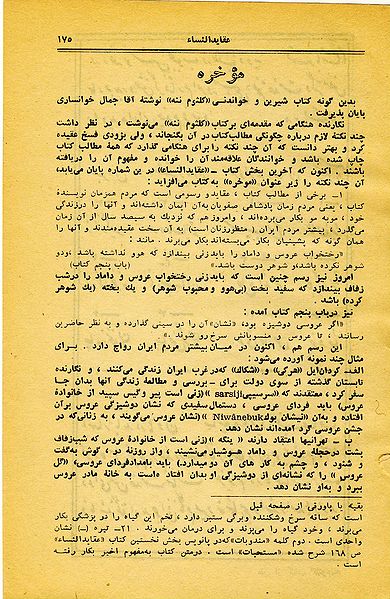 عقایدالنساء ۱۷۵
مؤخره
بدین گونه کتاب شیرین و خواندنی «کلثوم ننه» نوشتهٔ آقا جمال خوانساری
پایان پذیرفت .
نگارنده هنگامی که مقدمه‌ای بر کتاب «کلثوم ننه» می‌نوشت ، در نظر داشت
چند نکتهٔ لازم درباره چگونگی مطالب کتاب در آن بگنجاند ، ولی بزودی فسخ عقیده
کرد و بهتر دانست که آن چند نکته را برای هنگامی گذارد که همهٔ مطالب کتاب
چاپ شده باشد و خوانندگان علاقه‌مند آن را خوانده و مفهوم آن را دریافته
باشند . اکنون که آخرین بخش کتاب ـ «عقایدالنساء» در این شماره پایان می‌یابد،
آن چند نکته را زیر عنوان «مؤخره» به کتاب می‌افزاید :
۱ـ برخی از مطالب کتاب ، عقاید و رسومی است که مردم همزمان نویسندهٔ
کتاب ، یعنی مردم زمان پادشاهی صفویان به آن ایمان داشته‌اند و آنها را در زندگی
خود ، مو به مو بکار می‌برده‌اند ، و امروز هم که نزدیك به سیصد سال از آن زمان
می‌گذرد ، بیشتر مردم ایران (منظور زنان است) به آن سخت عقیده‌مندند و آنها را
همان گونه که پیشینیان بکار می‌بسته‌اند بکار می‌برند . مانند :
«رختخواب عروس و داماد را باید زنی بیندازد که هوو نداشته باشد ، ودو
شوهر نکرده باشد ، و شوهر دوست باشد.» (باب پنجم کتاب)
امروز نیز رسم چنین است که باید زنی رختخواب عروس و داماد را در شب
زفاف بیندازد که سفید بخت (بی‌هوو و محبوب شوهر) و یك بخته (یك شوهر
کرده) باشد .
نیز در باب پنجم کتاب آمده :
«اگر عروسی دوشیزه بود ، نشان آن را در سینی گذارده و به نظر حاضرین
رسانند ، تا عروس و منسوبانش سرخ‌رو شوند .»
این رسم هم ، اکنون در میان بیشتر مردم ایران رواج دارد . برای
مثال چند نمونه آورده می‌شود :
الف ـ کردان ایل «هرکی» و «شکاك» که در غرب ایران زندگی می‌کنند ، و نگارنده
تابستان گذشته از سوی دولت برای ـ بررسی و مطالعهٔ زندگی آنها بدان جا
سفر کرد ، معتقدند که «سرسپی sarsij» (زنی است پیر و گیس سپید از خانوادهٔ
عروس) باید فردای عروسی ، دستمال سفیدی که نشان دوشیزگی عروس بر آن
افتاده و به آن «نیشان بوك Nîwânebuk» (نشان عروس می‌گویند ، به زنانی که در
جشن عروسی گرد آمده‌اند نشان دهد .
ب ـ تهرانیها اعتقاد دارند «ینگه» (زنی است از خانوادهٔ عروس که شب زفاف
پشت درحجله عروس و داماد هوشیار می‌نشیند ، و از روزنهٔ در ، گوش به گفت
و شنود ، و چشم به کار های آن دو میدارد) باید بامداد فردای عروسی «گل
عروس» را که نشانه‌ای از دوشیزگی او بدان افتاده است به خانهٔ مادر عروس
ببرد و به او نشان دهد .
بقیه یا پاورقی از صفحه قبل
است که ساقه سرخ وشکننده وبرگی ستبر دارد ، تخم این گیاه را در پزشکی بکار
می‌برند ، وخود گیاه را می‌پزند و برای درمان می‌خورند . ۲۱ـ تیره (ـ) نشان
واحدی است . دوم کلمه «مندوبات» که در پانویس بخش نخستین کتاب «عقایدالنساء»
ص ۱۶۸ شرح شده «مستحبات» است . درمتن کتاب به‌مفهوم اخیر بکار رفته
است .